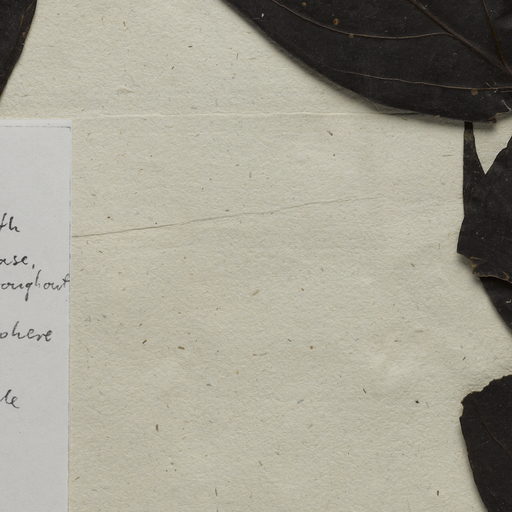 th
ase,
oughout
phere
le